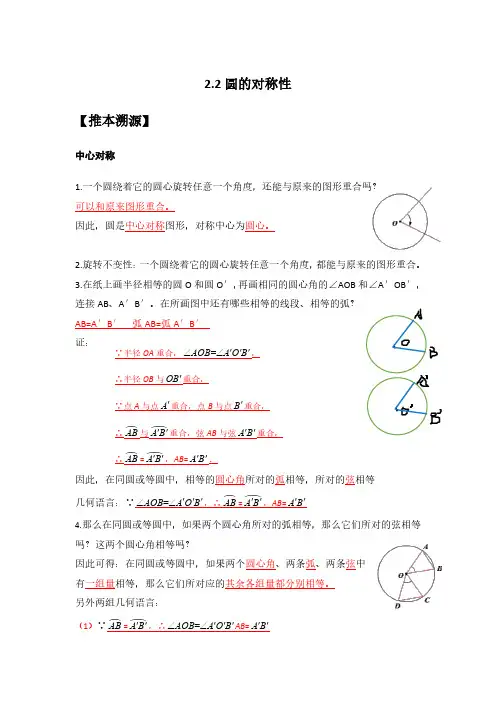 2.2 圆的对称性
【推本溯源】
中心对称
1.一个圆绕着它的圆心旋转任意一个角度，还能与原来的图形重合吗？
可以和原来图形重合。
因此，圆是中心对称图形，对称中心为圆心。
O
2.旋转不变性：一个圆绕着它的圆心旋转任意一个角度，都能与原来的图形重合。
3.在纸上画半径相等的圆O和圆O′，再画相同的圆心角的∠AOB和∠A′OB′，
连接AB、A′B′。在所画图中还有哪些相等的线段、相等的弧？
AB=A′B′ 弧AB=弧A′B′
证：
∵半径OA重合，∠AOB=∠A′O′B′，
∴半径OB与OB′重合，
∵点A与点A′重合，点B与点B′重合，
∴AB与A′B′重合，弦AB与弦A′B′重合，
∴AB=A′B′，AB=A′B′。
A
O
B
A′
O′
B′
因此，在同圆或等圆中，相等的圆心角所对的弧相等，所对的弦相等
几何语言：∵∠AOB=∠A′O′B′，∴AB=A′B′，AB=A′B′
4.那么在同圆或等圆中，如果两个圆心角所对的弧相等，那么它们所对的弦相等
吗？这两个圆心角相等吗？
因此可得：在同圆或等圆中，如果两个圆心角、两条弧、两条弦中
有一组量相等，那么它们所对应的其余各组量都分别相等。
另外两组几何语言：
A
B
O
D
C
（1）∵AB=A′B′，∴∠AOB=∠A′O′B′AB=A′B′